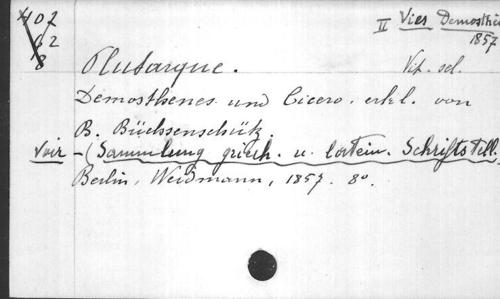 402
62
8
II Vies Demosthè
1857
Plutarque. Vit. sel.
Demosthenes und Cicero. erkl. von
B. Büchsenschütz.
Voir - (Sammlung griech. u. latein. Schriftstell.
Berlin, Weidmann, 1857. 8°.